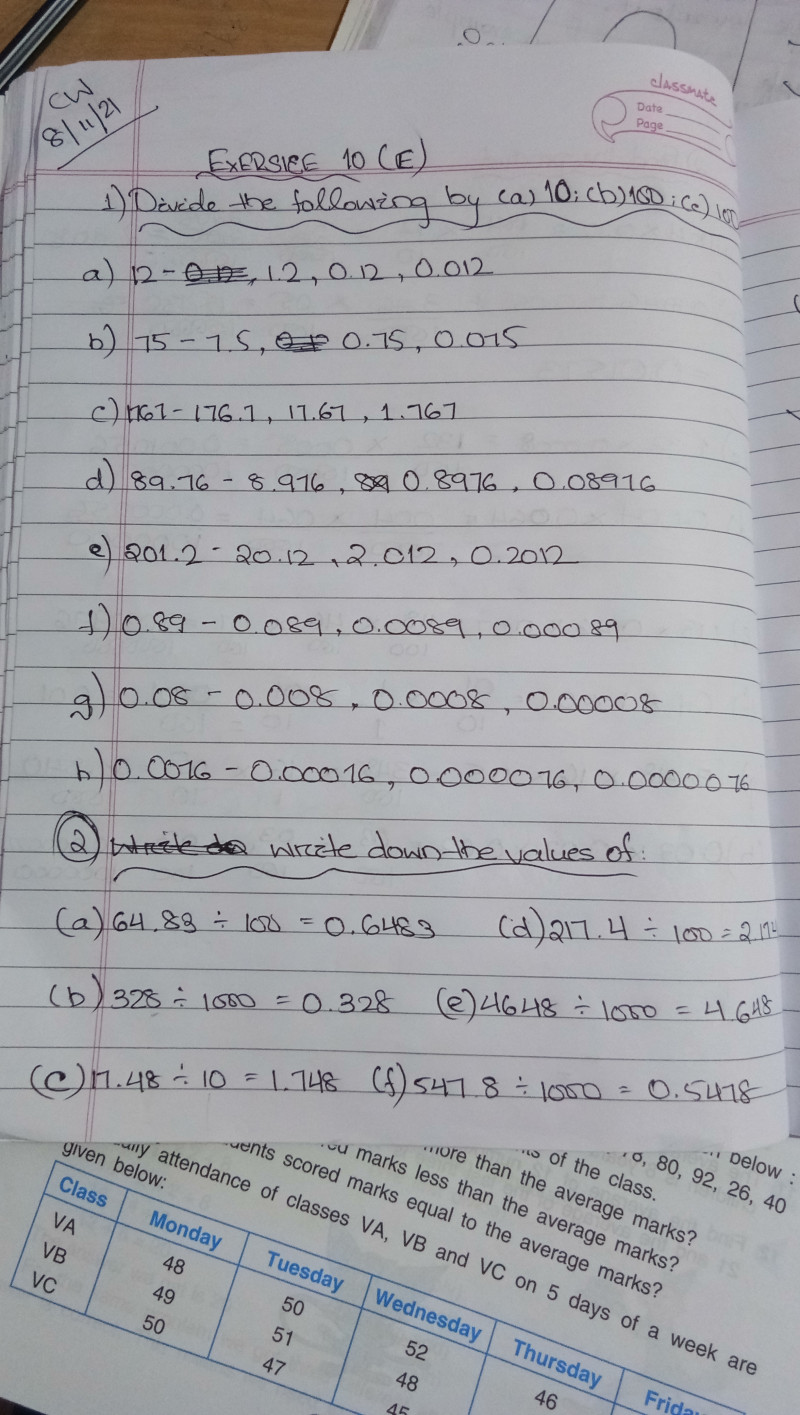 CW
8/11/21
classmate
Date
Page
EXERSICE 10 (E)
1) Divide the following by (a) 10; (b) 100; (c) 100
a) 12 - 1.2, 0.12, 0.012
b) 75 - 7.5, 0.75, 0.075
c) 1767 - 176.7, 17.67, 1.767
d) 89.76 - 8.976, 0.8976, 0.08976
e) 201.2 - 20.12, 2.012, 0.2012
f) 0.89 - 0.089, 0.0089, 0.00089
g) 0.08 - 0.008, 0.0008, 0.00008
h) 0.0076 - 0.00076, 0.000076, 0.0000076
2) write down the values of:
(a) 64.83 ÷ 100 = 0.6483 (d) 217.4 ÷ 100 = 2.174
(b) 328 ÷ 1000 = 0.328 (e) 4648 ÷ 1000 = 4.648
(c) 17.48 ÷ 10 = 1.748 (f) 547.8 ÷ 1000 = 0.5478
below :
80, 92, 26, 40
of the class.
more than the average marks?
marks less than the average marks?
scored marks equal to the average marks?
attendance of classes VA, VB and VC on 5 days of a week are
given below:
Class Monday Tuesday Wednesday Thursday
VA 48 50 52 46
VB 49 51 48
VC 50 47